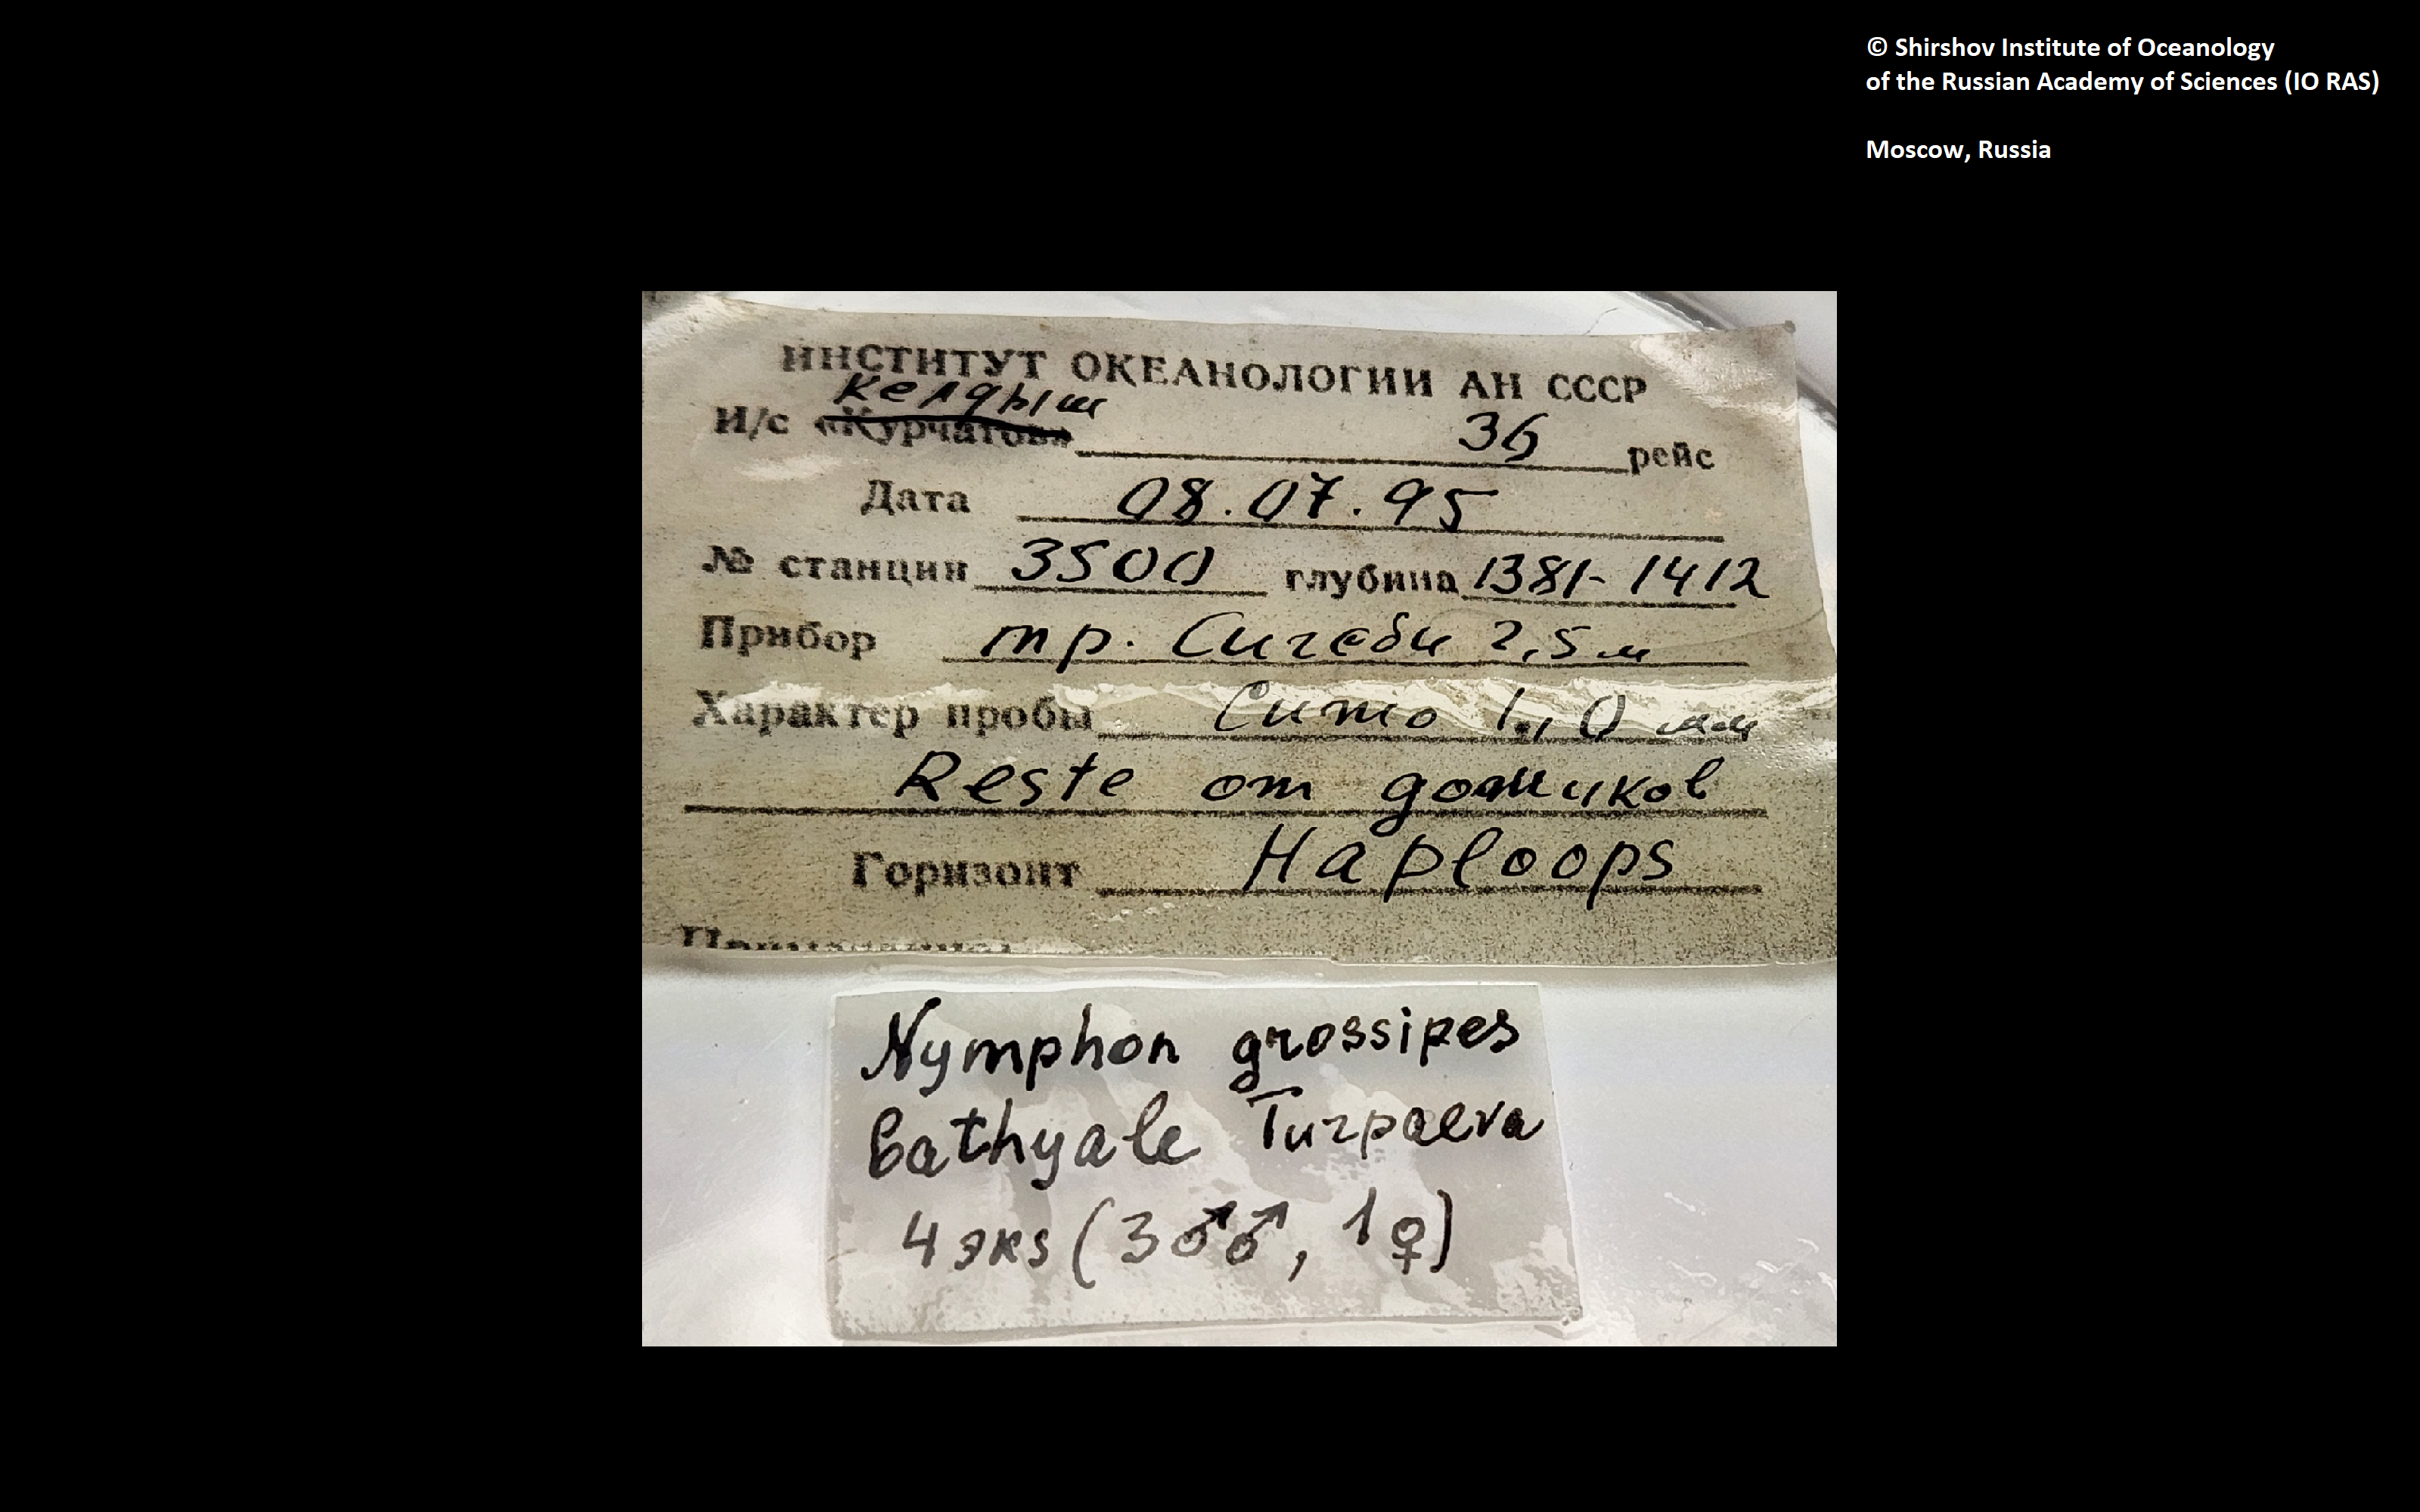 © Shirshov Institute of Oceanology
of the Russian Academy of Sciences (IO RAS)
Moscow, Russia
ИНСТИТУТ ОКЕАНОЛОГИИ АН СССР
Келдыш
И/с «Курчатов» 36 рейс
Дата 08.07.95
№ станции 3500 глубина 1381-1412
Прибор тр. Сигсби 2,5 м
Характер пробы Сито 1,0 мм
Reste от домиков
Горизонт Haploops
Nymphon grossipes
bathyale Turpaeva
4 экз (3 ♂♂, 1 ♀)